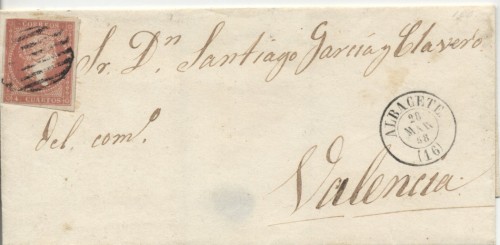 CORREOS
4 CUARTOS
Sr. Dn Santiago García y Clavero
del comº
Valencia
ALBACETE
28
MAR
58
(16)